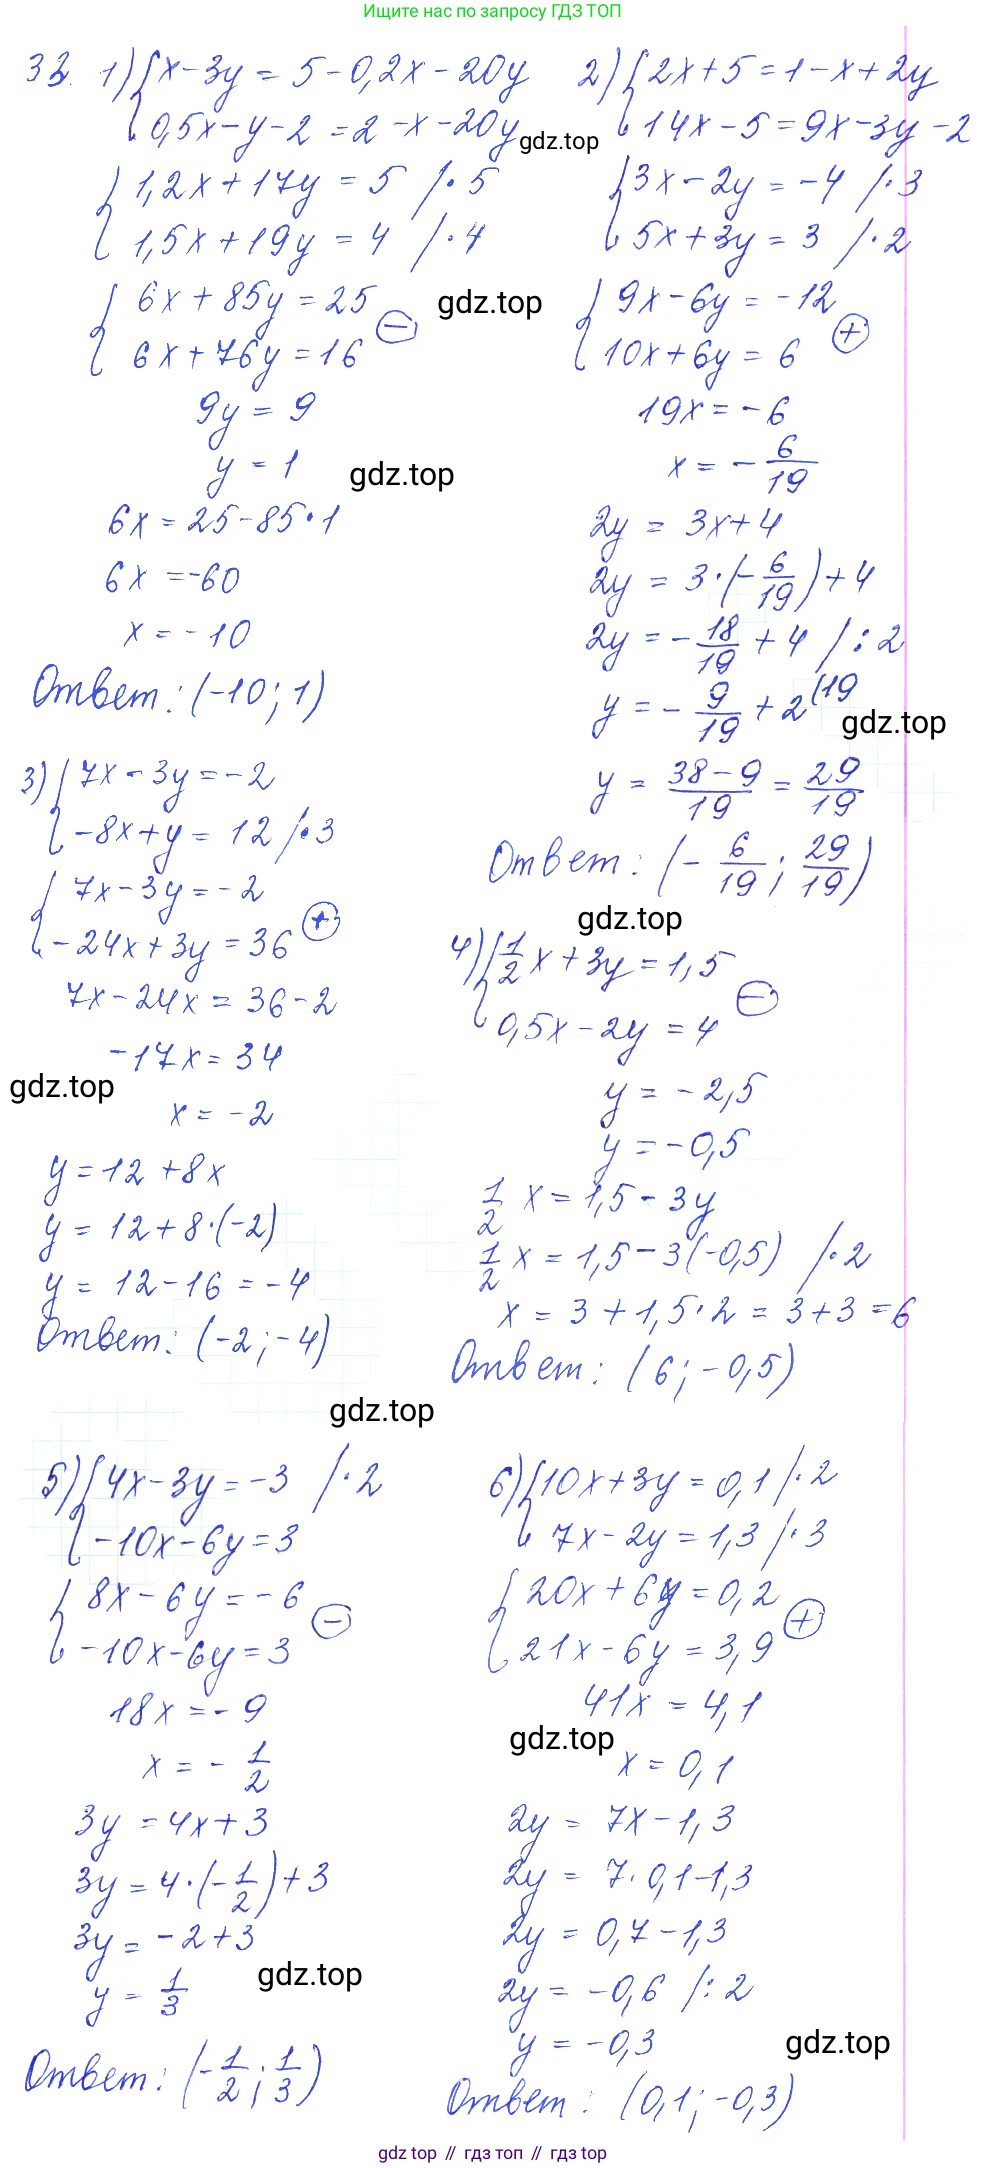 Ищите нас по запросу ГДЗ ТОП
33. 1) { x - 3y = 5 - 0,2x - 20y
0,5x - y - 2 = 2 - x - 20y
gdz.top
{ 1,2x + 17y = 5 /·5
1,5x + 19y = 4 /·4
{ 6x + 85y = 25
6x + 76y = 16 ⊖
gdz.top
9y = 9
y = 1
gdz.top
6x = 25 - 85·1
6x = -60
x = -10
Ответ: (-10; 1)
2) { 2x + 5 = 1 - x + 2y
14x - 5 = 9x - 3y - 2
{ 3x - 2y = -4 /·3
5x + 3y = 3 /·2
{ 9x - 6y = -12
10x + 6y = 6 ⊕
19x = -6
x = - 6/19
2y = 3x + 4
2y = 3·(- 6/19) + 4
2y = - 18/19 + 4 /:2
y = - 9/19 + 2 (19
gdz.top
y = (38 - 9)/19 = 29/19
Ответ: (- 6/19; 29/19)
gdz.top
3) { 7x - 3y = -2
-8x + y = 12 /·3
{ 7x - 3y = -2
-24x + 3y = 36 ⊕
7x - 24x = 36 - 2
-17x = 34
gdz.top
x = -2
y = 12 + 8x
y = 12 + 8·(-2)
y = 12 - 16 = -4
Ответ: (-2; -4)
4) { 1/2 x + 3y = 1,5
0,5x - 2y = 4 ⊖
y = -2,5
y = -0,5
1/2 x = 1,5 - 3y
1/2 x = 1,5 - 3(-0,5) /·2
x = 3 + 1,5·2 = 3 + 3 = 6
Ответ: (6; -0,5)
gdz.top
5) { 4x - 3y = -3 /·2
-10x - 6y = 3
{ 8x - 6y = -6
-10x - 6y = 3 ⊖
18x = -9
x = - 1/2
3y = 4x + 3
3y = 4·(- 1/2) + 3
3y = -2 + 3
gdz.top
y = 1/3
Ответ: (- 1/2; 1/3)
6) { 10x + 3y = 0,1 /·2
7x - 2y = 1,3 /·3
{ 20x + 6y = 0,2
21x - 6y = 3,9 ⊕
41x = 4,1
gdz.top
x = 0,1
2y = 7x - 1,3
2y = 7·0,1 - 1,3
2y = 0,7 - 1,3
2y = -0,6 /:2
y = -0,3
gdz.top
Ответ: (0,1; -0,3)
gdz top // гдз топ // гдз топ